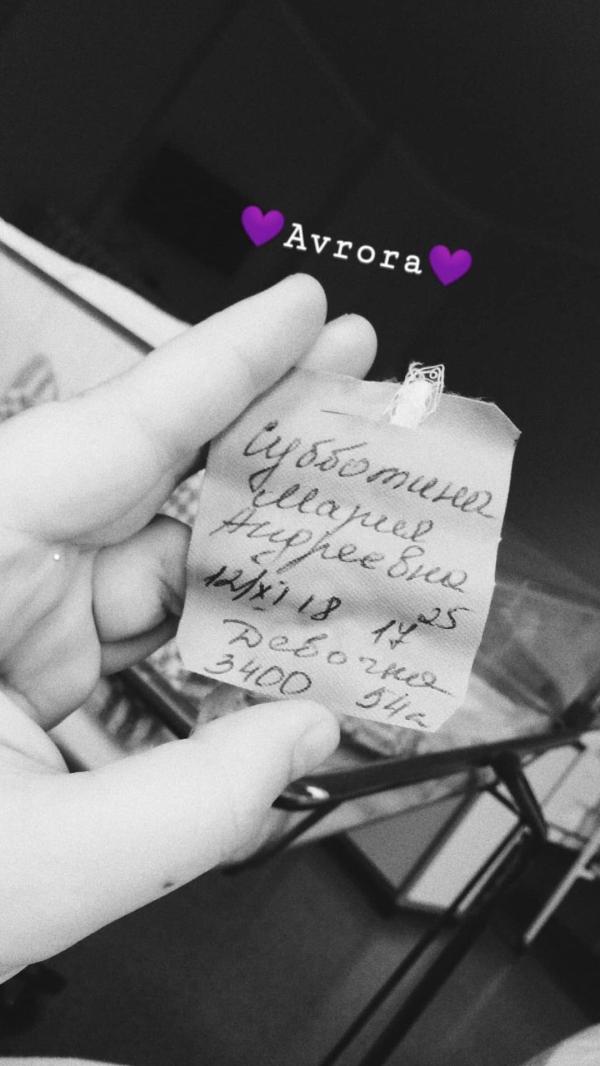 💜Avrora💜
Субботина
Мария
Андреевна
12/XI 18 17 25
Девочка
3400 54с